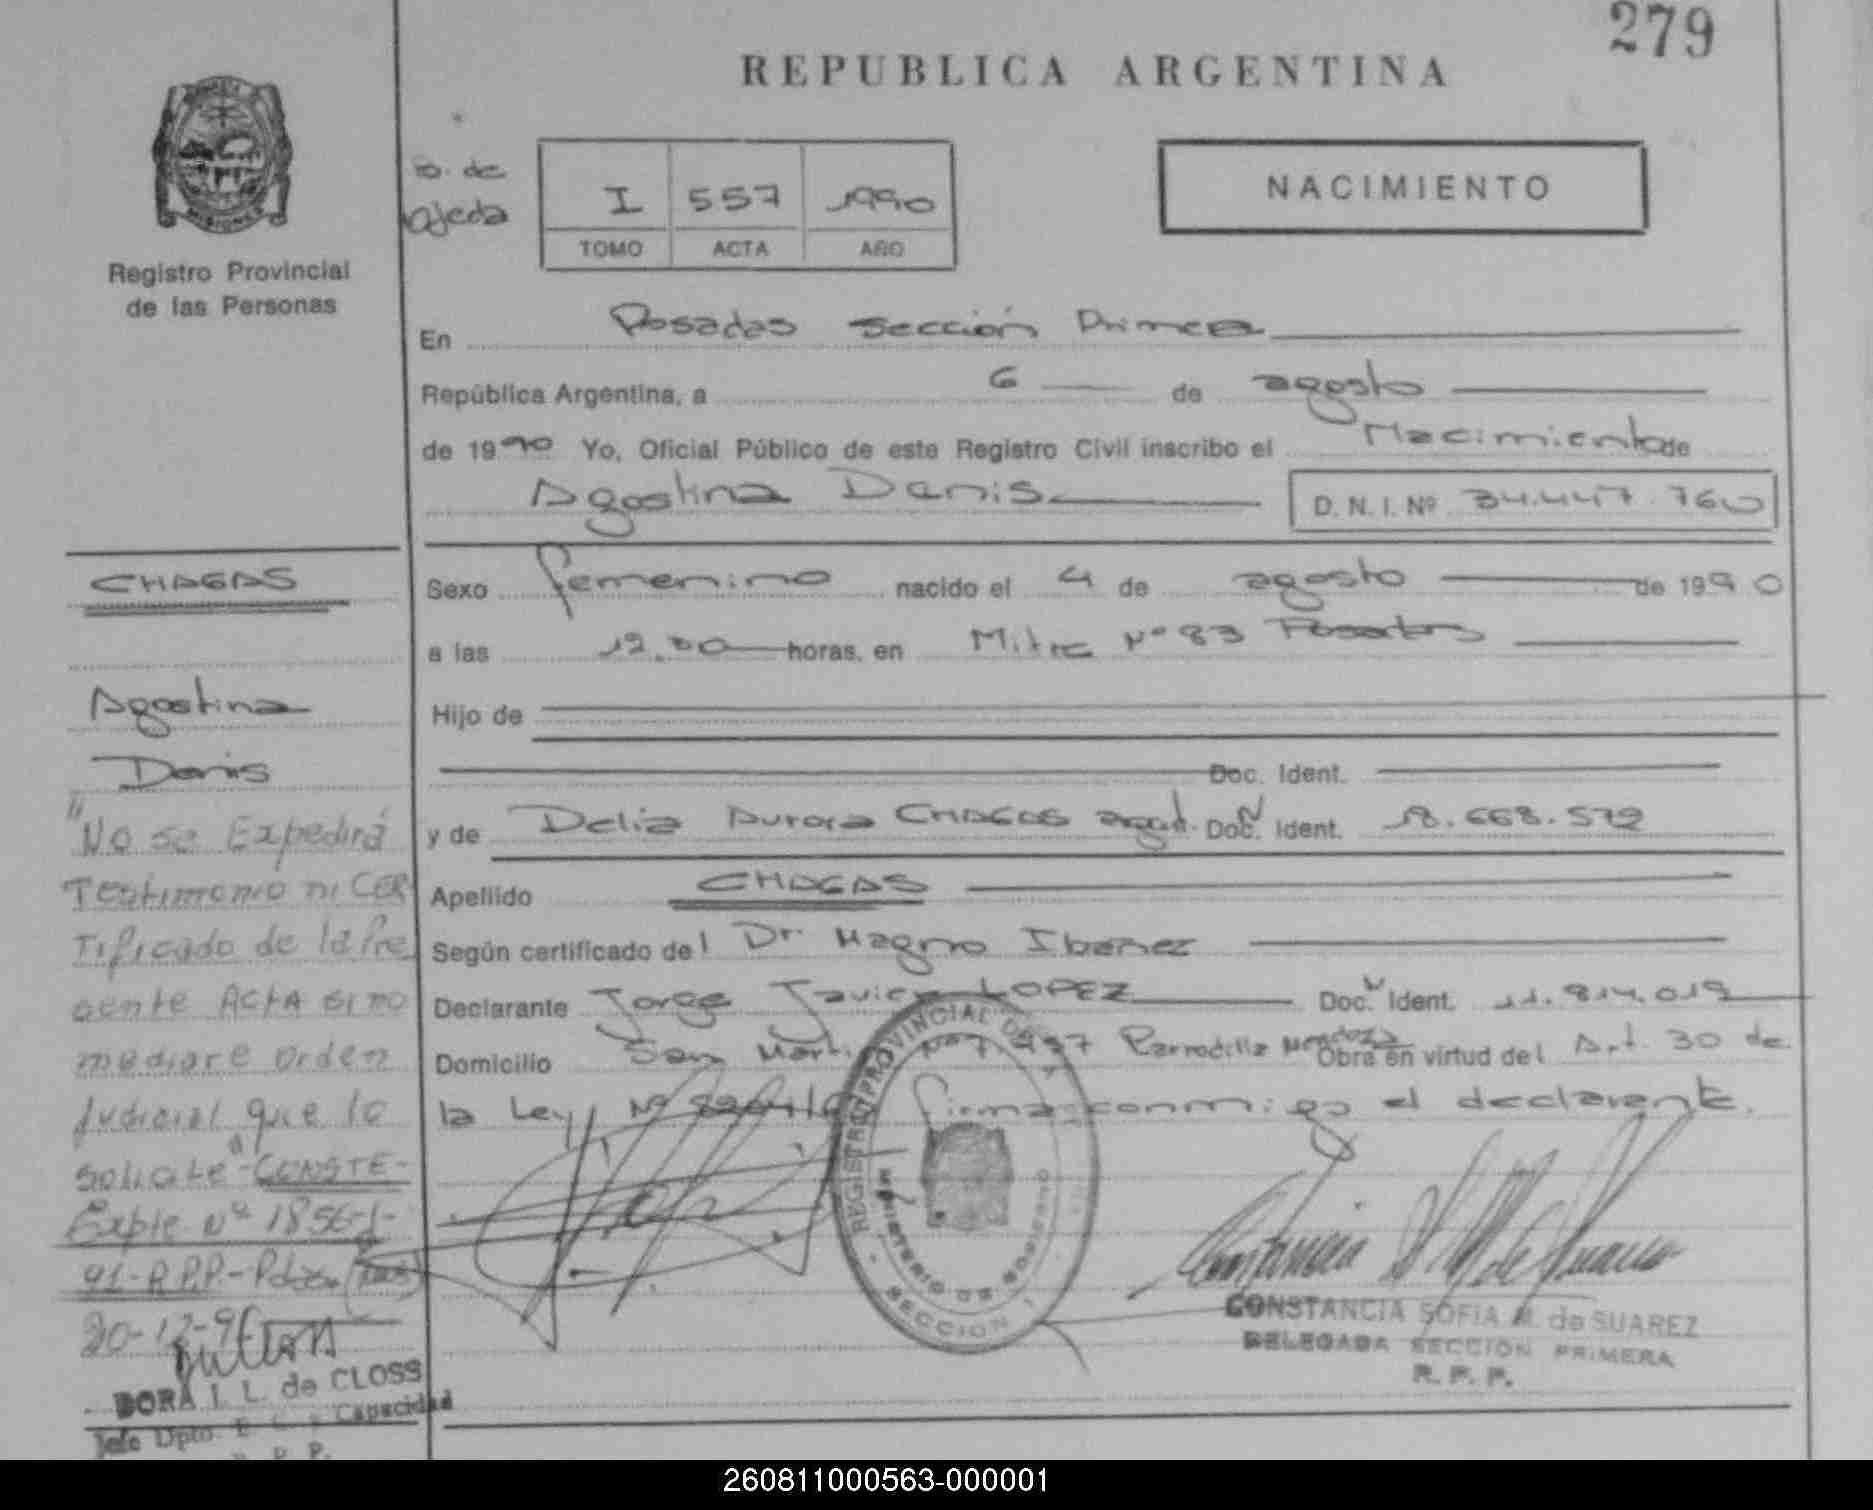 279
REPUBLICA ARGENTINA
MISIONES
Registro Provincial
de las Personas
ojeda
I 557 1990
TOMO ACTA AÑO
NACIMIENTO
En Posadas sección Primera
República Argentina, a 6 de agosto
de 1990 Yo, Oficial Público de este Registro Civil inscribo el Nacimiento de
Agostina Denis D.N.I. Nº 34.447.760
CHAGAS
Agostina
Denis
"No se Expedirá
Testimonio ni CER
Tificado de la Pre
sente ACTA si no
mediare orden
judicial que lo
solicite"-CONSTE-
Expte. Nº 1856-J-
91-R.P.P.-
20-12-91
DORA I. L. de CLOSS
Jefe Dpto. E. C. y Capacidad
R. P. P.
Sexo femenino nacido el 4 de agosto de 1990
a las 12.30 horas, en Mitre Nº 83 Posadas
Hijo de
Doc. Ident.
y de Delia Aurora CHAGAS argt. Doc. Ident. 18.668.572
Apellido CHAGAS
Según certificado del Dr. Magno Ibañez
Declarante Jorge Javier LOPEZ Doc. Ident. 11.814.019
Domicilio San Martin Nº 7.497 Carrodilla Mendoza Obra en virtud del Art. 30 de
la Ley Nº firma conmigo el declarante.
REGISTRO PROVINCIAL DE LAS
MINISTERIO DE GOBIERNO
SECCION 1
CONSTANCIA SOFIA M. de SUAREZ
DELEGADA SECCION PRIMERA
R. P. P.
260811000563-000001